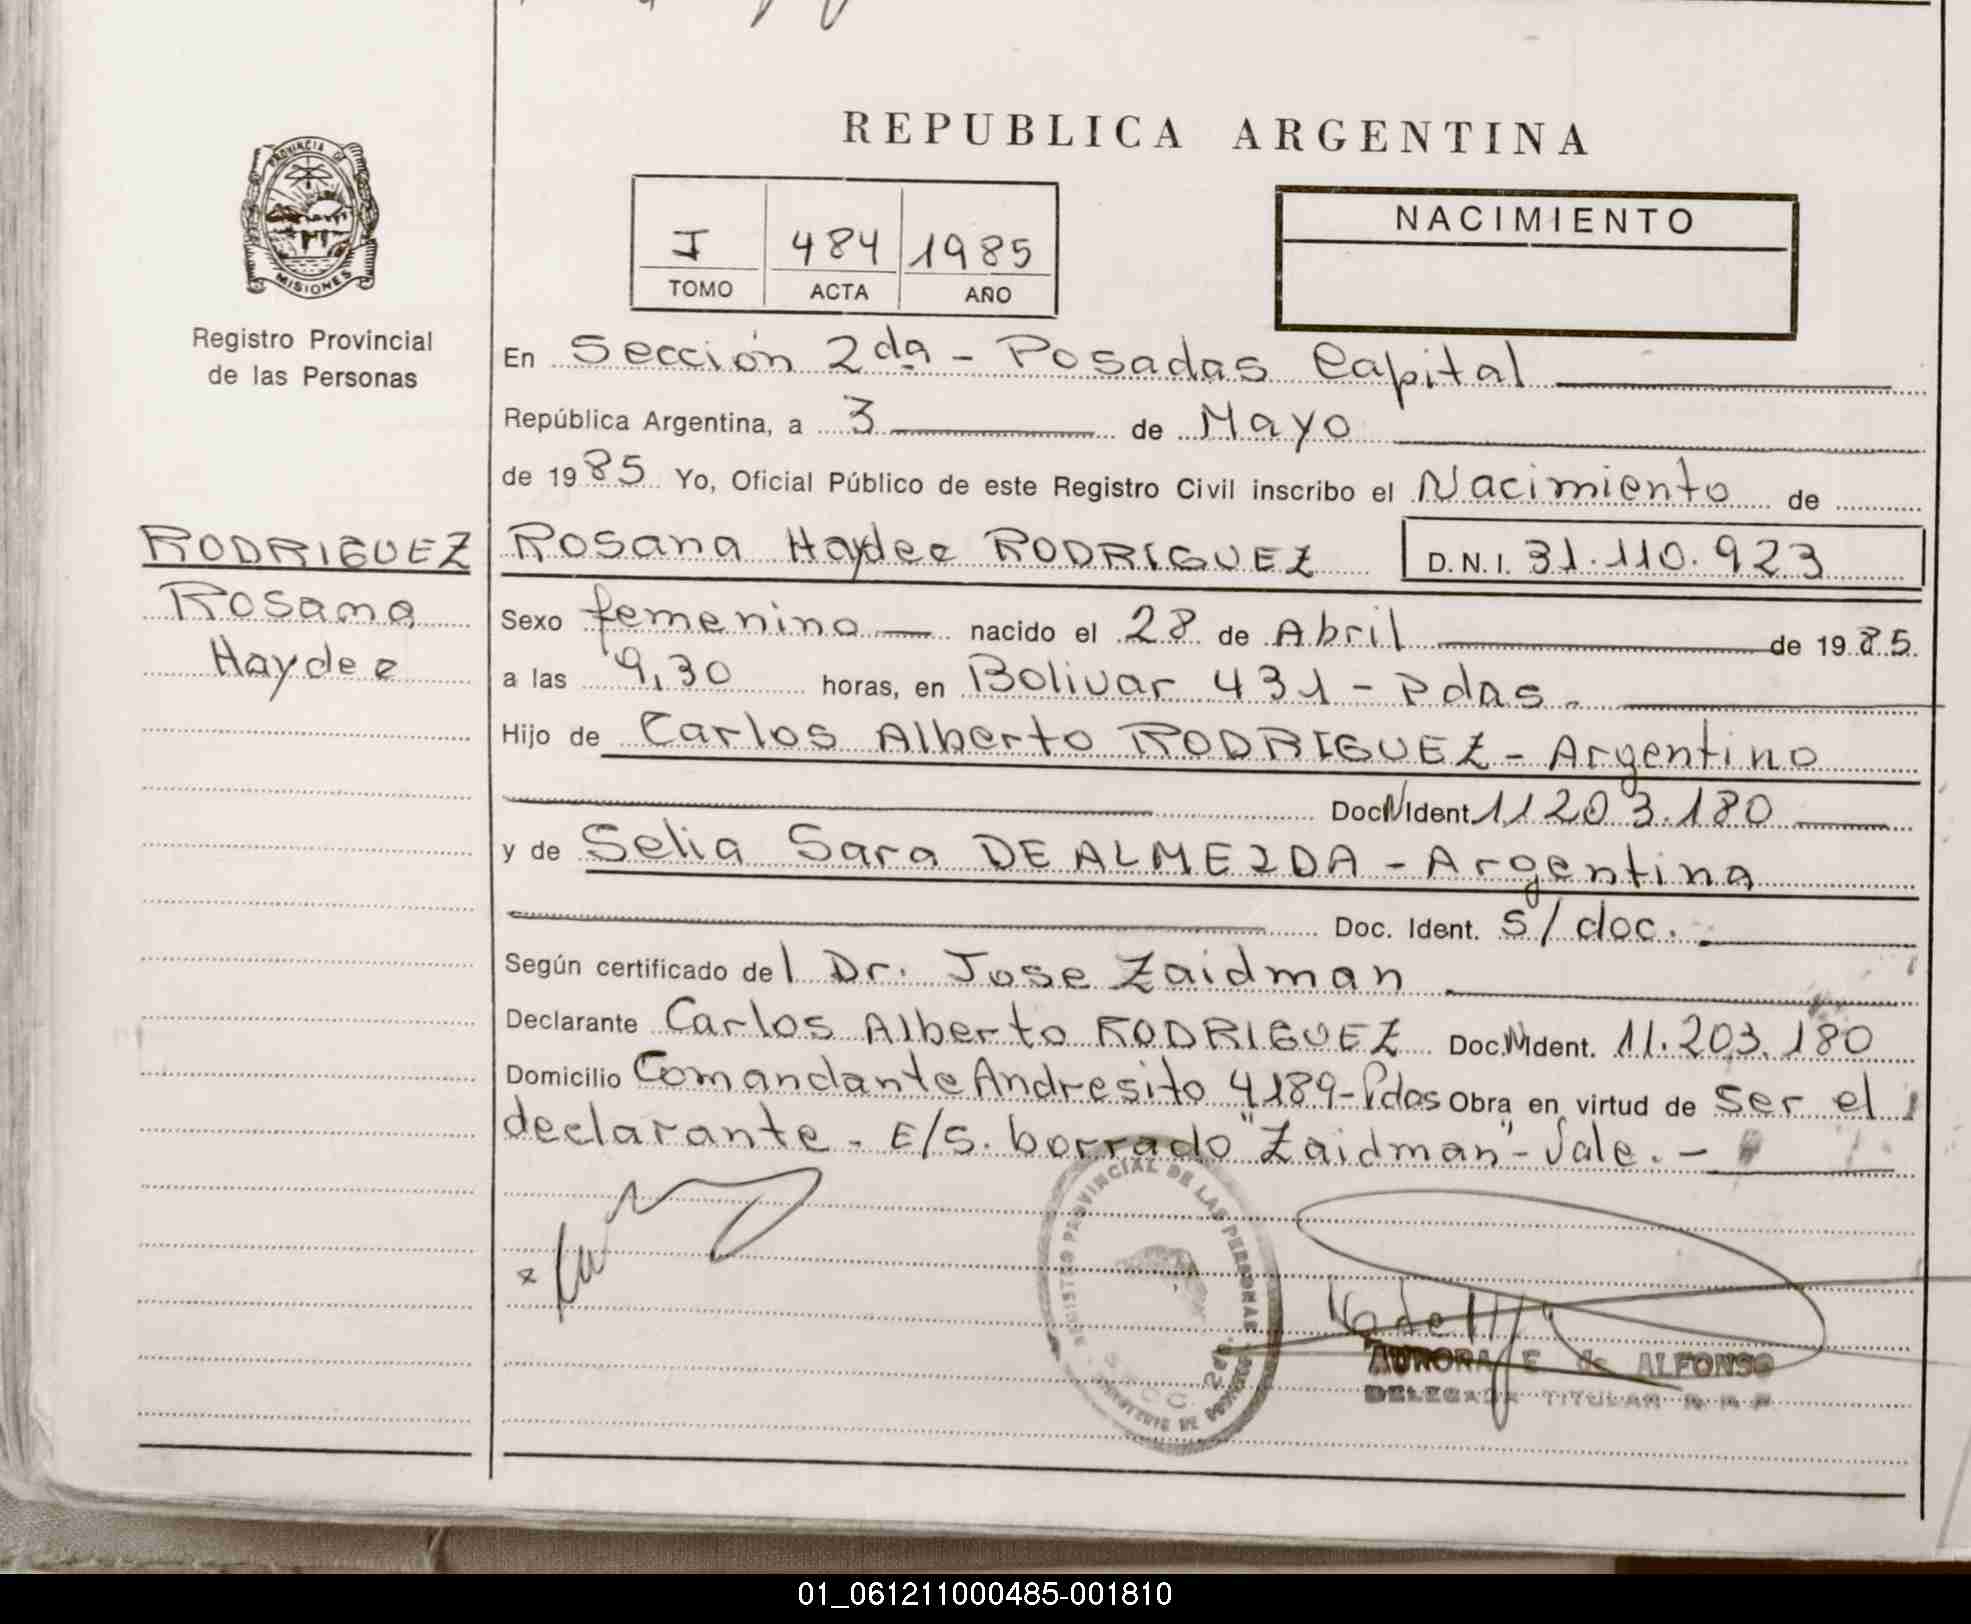 REPUBLICA ARGENTINA
PROVINCIA DE
MISIONES
Registro Provincial
de las Personas
I 484 1985
TOMO ACTA AÑO
NACIMIENTO
En Sección 2da - Posadas Capital
República Argentina, a 3 de Mayo
de 1985 Yo, Oficial Público de este Registro Civil inscribo el Nacimiento de
RODRIGUEZ
Rosana
Haydee
Rosana Haydee RODRIGUEZ D.N.I. 31.110.923
Sexo femenino nacido el 28 de Abril de 1985.
a las 9,30 horas, en Bolivar 431 - Pdas.
Hijo de Carlos Alberto RODRIGUEZ - Argentino
Doc N Ident. 11203.180
y de Selia Sara DE ALMEIDA - Argentina
Doc. Ident. s/doc.
Según certificado del Dr. Jose Zaidman
Declarante Carlos Alberto RODRIGUEZ Doc. N Ident. 11.203.180
Domicilio Comandante Andresito 4189-Pdas Obra en virtud de ser el
declarante. E/S. borrado "Zaidman" - Vale. -
REGISTRO PROVINCIAL DE LAS PERSONAS
MINISTERIO DE GOBIERNO
AURORA E. de ALFONSO
DELEGADA TITULAR R. P. P.
01_061211000485-001810